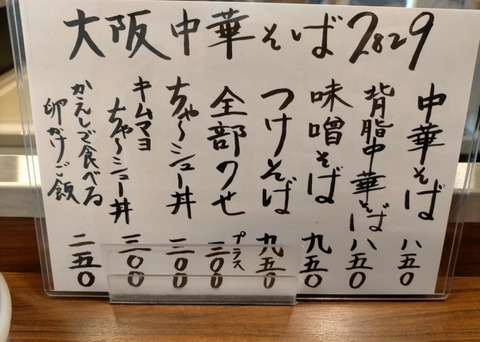 大阪中華そば2829
中華そば 八五0
背脂中華そば 八五0
味噌そば 九五0
つけそば 九五0
全部のせ プラス三00
ちゃ〜シュー丼 三00
キムマヨ
ちゃ〜シュー丼 三00
かえしで食べる
卵かけご飯 二五0